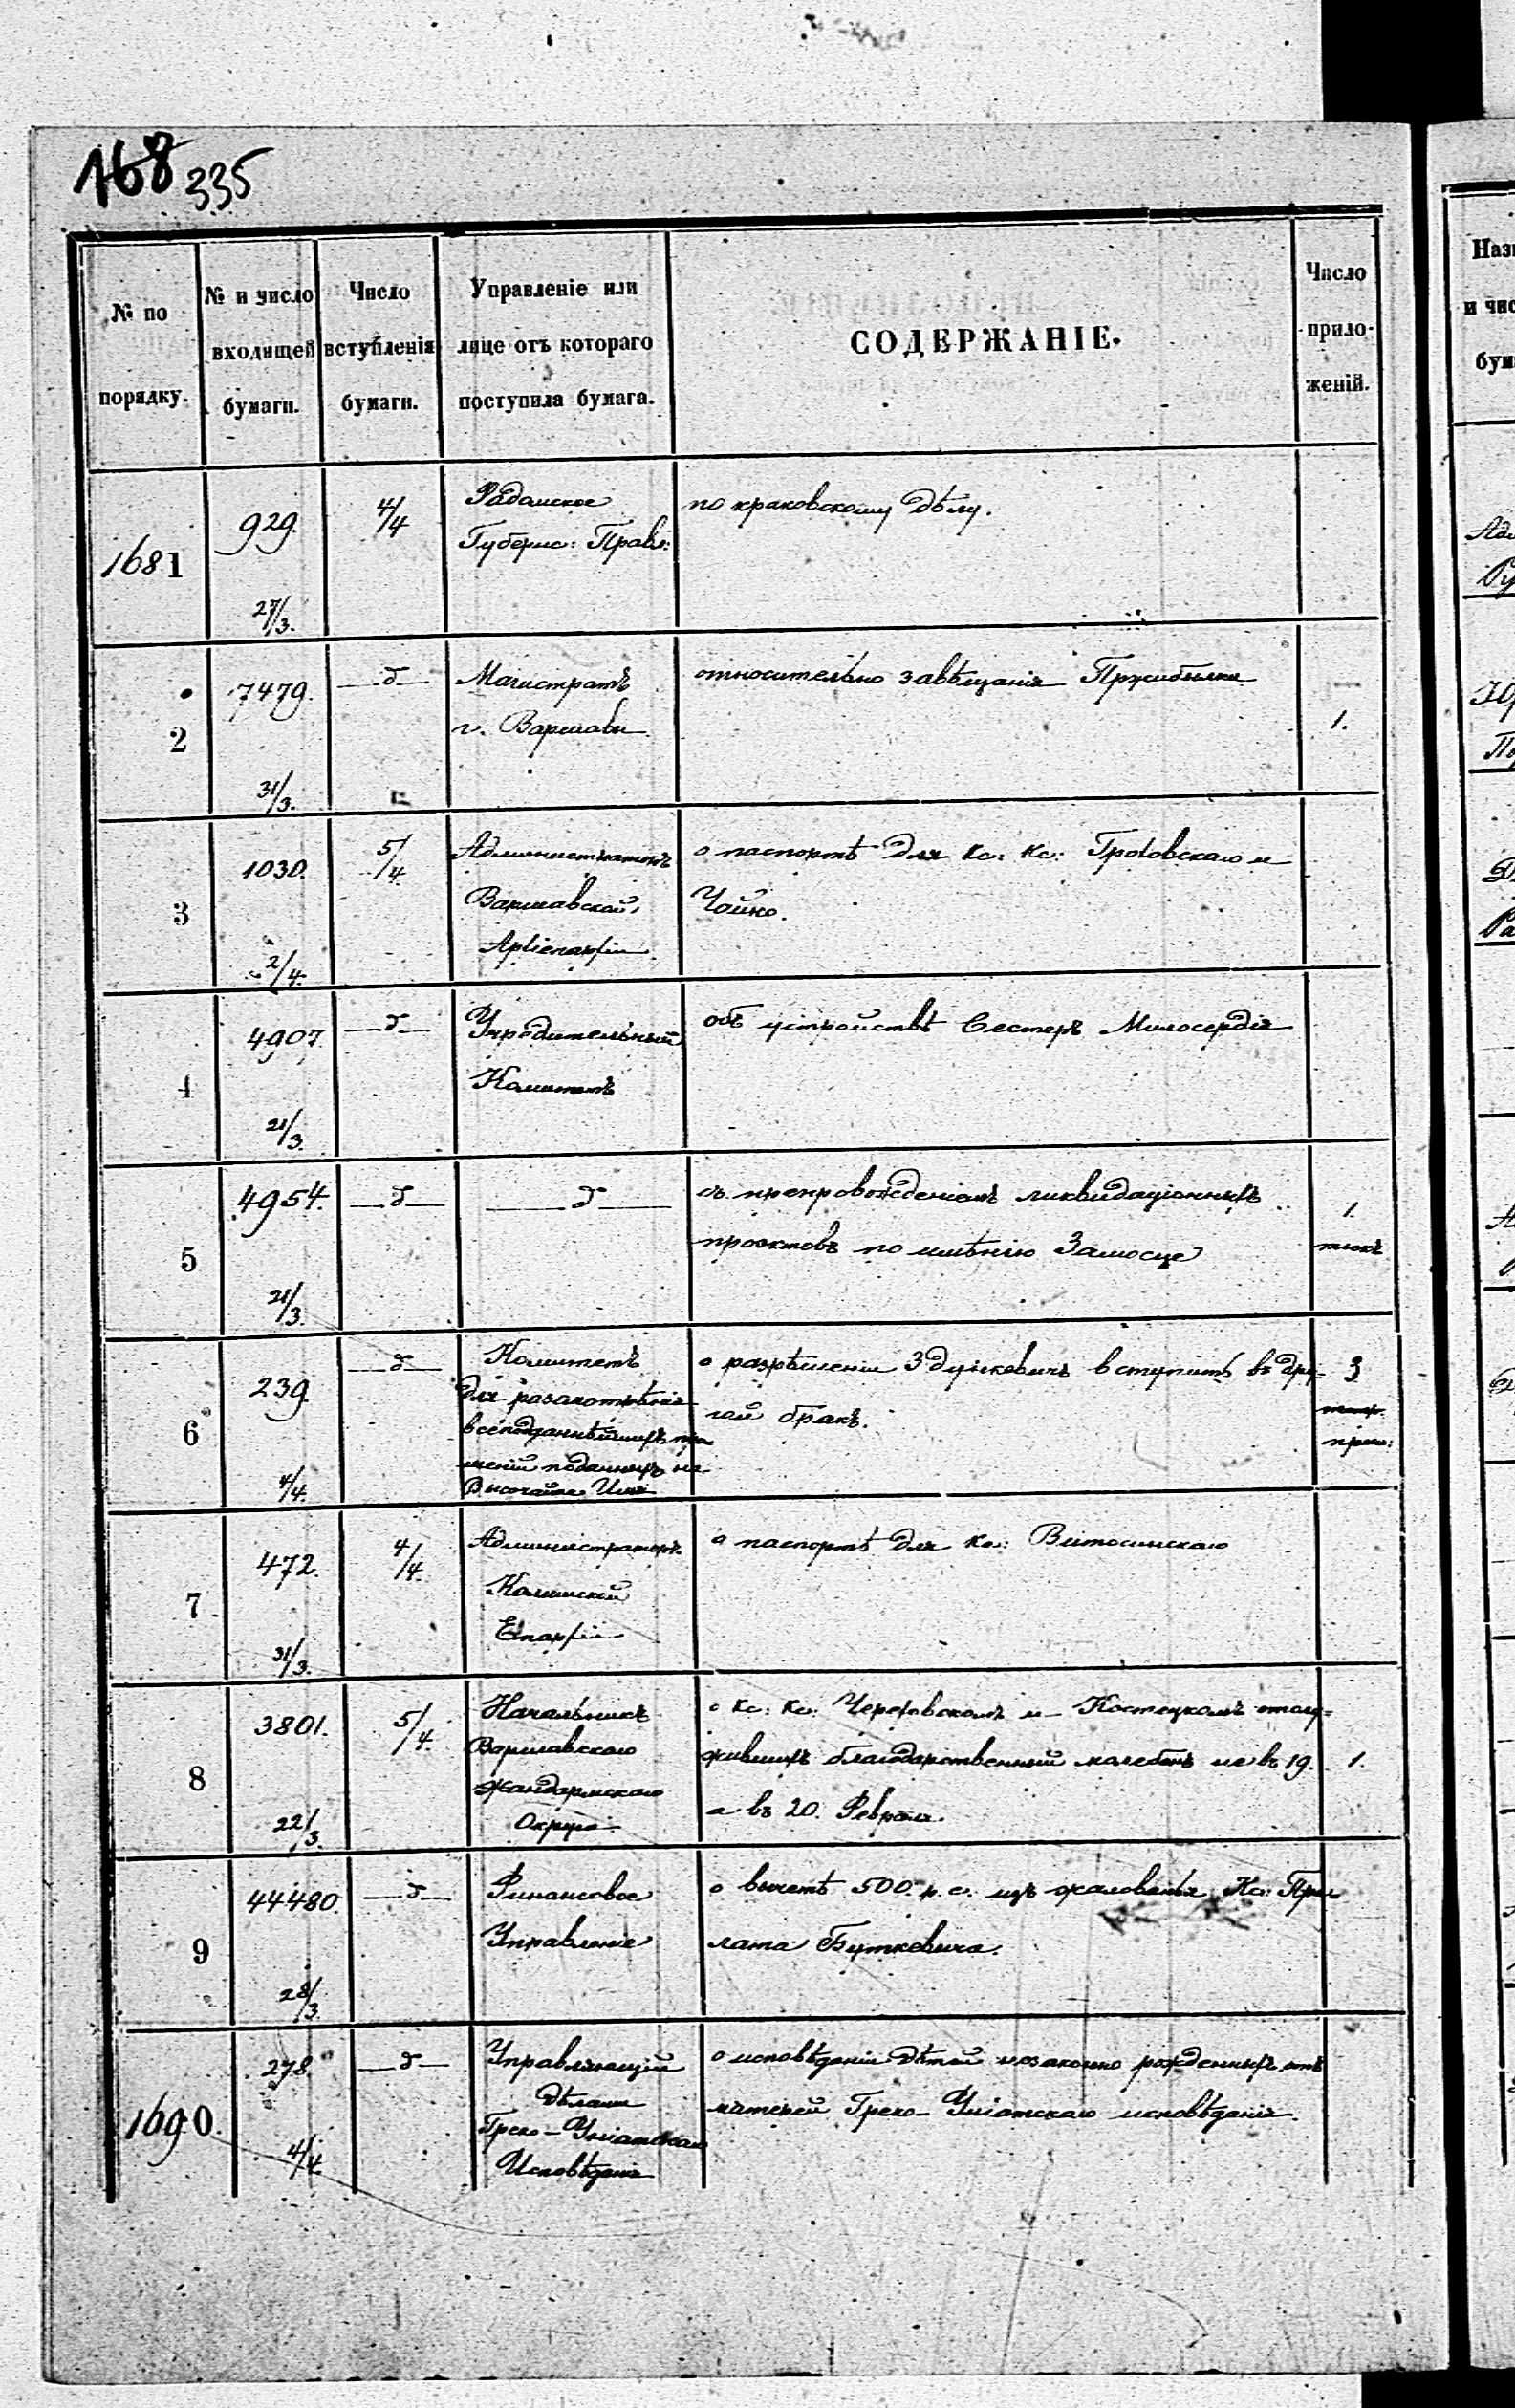 168 335
№ по порядку.
№ и число входящей бумаги.
Число вступленія бумаги.
Управленіе или лице отъ котораго поступила бумага.
СОДЕРЖАНІЕ.
Число прило- женій.
1681
929.
27/3.
4/4
Радомское
Губернс: Правл:
по краковскому дѣлу.
2
7479.
31/3.
—д—
Магистратъ
г. Варшавы
относительно завѣщанія Пржибылки
1.
3
1030.
2/4.
5/4.
Администраторъ
Варшавской
Архіепархіи.
о паспортѣ для Кс: Кс: Гроховскаго и
Чайко.
4
4907
21/3.
—д—
Учредительный
Комитетъ
объ устройствѣ Сестеръ Милосердія
5
4954.
21/3.
—д—
—д—
съ препровожденіемъ ликвидаціонныхъ
проэктовъ по имѣнію Замосце
1.
тюкъ
6
239.
4/4.
—д—
Комитетъ
для разсмотрѣнія
всеподданнѣйшихъ про
шеній подаваемыхъ на
Высочайшее Имя
о разрѣшеніи Здункевичъ вступить въ дру-
гой бракъ.
3
прил:
7
472.
31/3.
4/4.
Администраторъ
Калишской
Епархіи
о паспортѣ для Кс: Витосинскаго
8
3801.
22/3.
5/4.
Начальникъ
Варшавскаго
Жандармскаго
Округа
о Кс: Кс: Череховскомъ и Костецкомъ отслу-
жившихъ благодарственный молебенъ не въ 19.
а въ 20. Февраля.
1.
9
44480.
28/3.
—д—
Финансовое
Управленіе
о вычетѣ 500. р. с. изъ жалованья Кс: Пре
лата Буткевича.
1690.
278.
4/4.
—д—
Управляющій
дѣлами
Греко-Уніатскаго
Исповѣданія
о исповѣданіи дѣтей незаконно рожденныхъ отъ
матерей Греко-Уніатскаго исповѣданія.